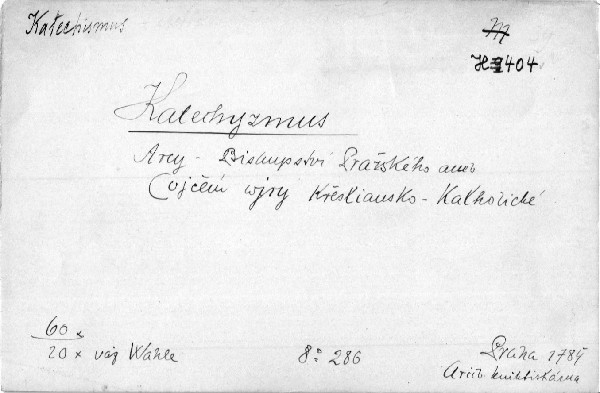 Katechismus
M
H 404
Katechyzmus
Arcy - Biskupství Pražského aneb
Cvičení wjry Křestiansko - Katholické
60 x
20 x váz Wahle
8° 286
Praha 1784
Arcib. knihtiskárna